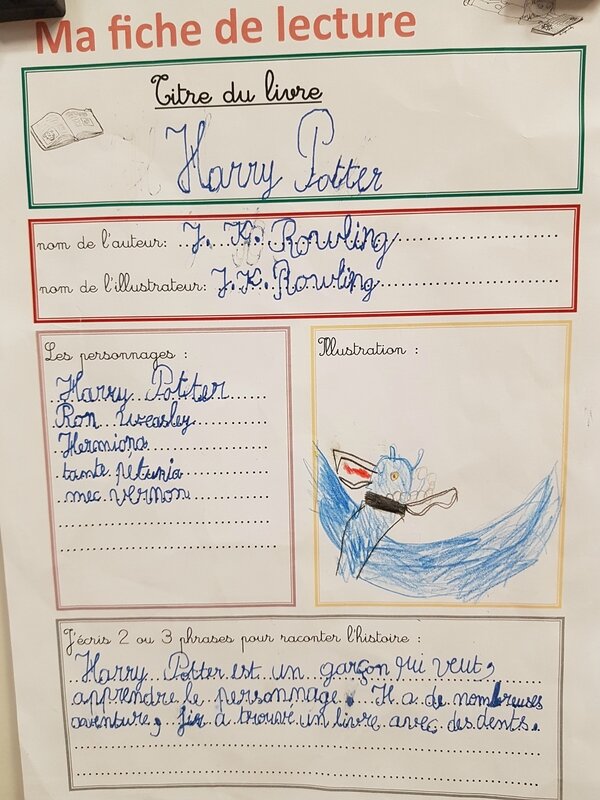 Ma fiche de lecture
Titre du livre
Harry Potter
nom de l'auteur: J. K. Rowling
nom de l'illustrateur: J.K. Rowling
Les personnages :
Harry Potter
Ron Weasley
Hermiona
tante pétunia
mec vernon
Illustration :
J'écris 2 ou 3 phrases pour raconter l'histoire :
Harry Potter est un garçon qui veut,
apprendre le personnage. Il a de nombreuses
aventure, à trouvé un livre avec des dents.